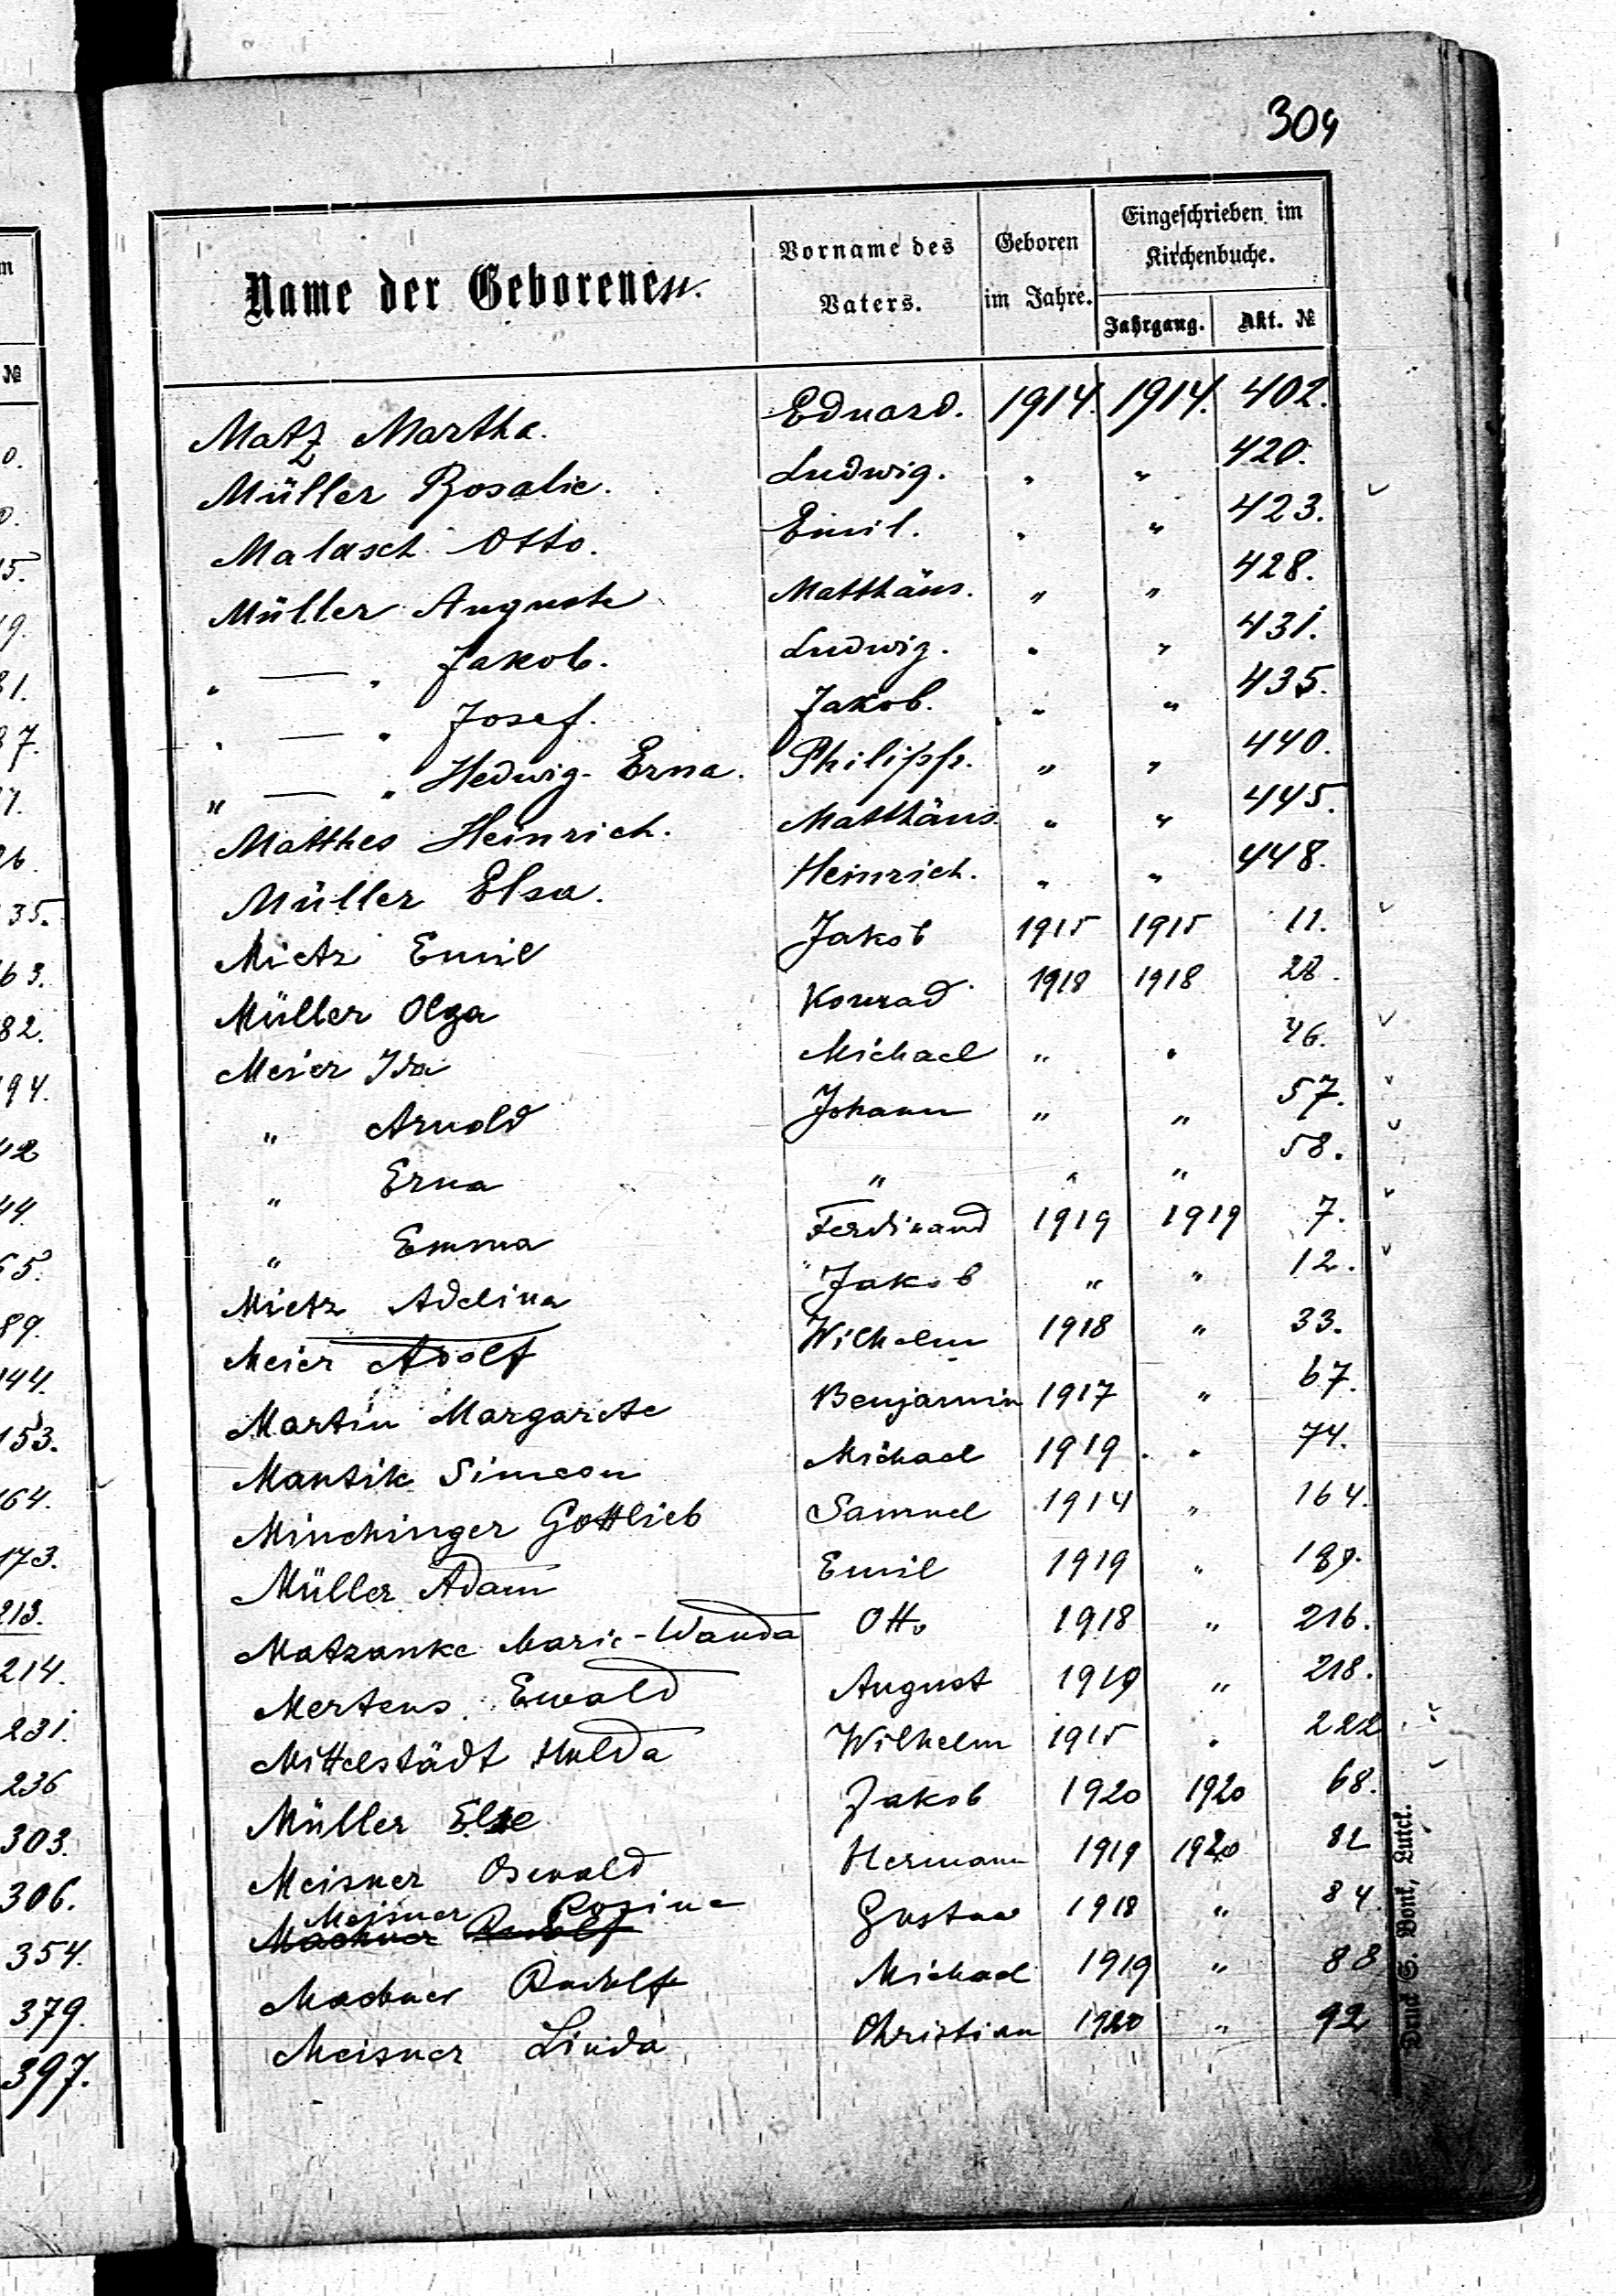 304
Name der Geborenen.
Vorname des Vaters.
Geboren im Jahre.
Eingeschrieben im Kirchenbuche.
Jahrgang.
Akt. №
Matz Martha. Eduard. 1914. 1914. 402.
Müller Rosalie. Ludwig. " " 420.
Malasch Otto. Emil. " " 423.
Müller Auguste Matthäus. " " 428.
" — " Jakob. Ludwig. " " 431.
" — " Josef. Jakob. " " 435.
" — " Hedwig-Erna. Philipp. " " 440.
Matthes Heinrich. Matthäus. " " 445.
Müller Elsa. Heinrich. " " 448.
Mietz Emil Jakob 1915 1915 11.
Müller Olga Konrad 1918 1918 28.
Meier Ida Michael " " 46.
" Arnold Johann " " 57.
" Erna " " " 58.
" Emma Ferdinand 1919 1919 7.
Mietz Adelina Jakob " " 12.
Meier Adolf Wilhelm 1918 " 33.
Martin Margarete Benjamin 1917 " 67.
Mantik Simeon Michael 1919. " 74.
Minchinger Gottlieb Samuel 1914 " 164.
Müller Adam Emil 1919 " 189.
Matzanke Marie-Wanda Otto 1918 " 216.
Mertens Ewald August 1919 " 218.
Mittelstädt Hulda Wilhelm 1915 " 222
Müller Else Jakob 1920 1920 68.
Meisner Oswald Hermann 1919 1920 82
Meisner Rosine
Machner Rudolf Gustav 1918 " 84.
Machner Rudolf Michael 1919 " 88
Meisner Linda Christian 1920 " 92
Druck S. Bonk, Lutck.
№
0.
0.
5.
19.
31.
37.
7.
26.
135.
163.
82.
194.
42
44.
65.
89.
144.
153.
164.
173.
213.
214.
231.
236
303.
306.
354.
379.
397.